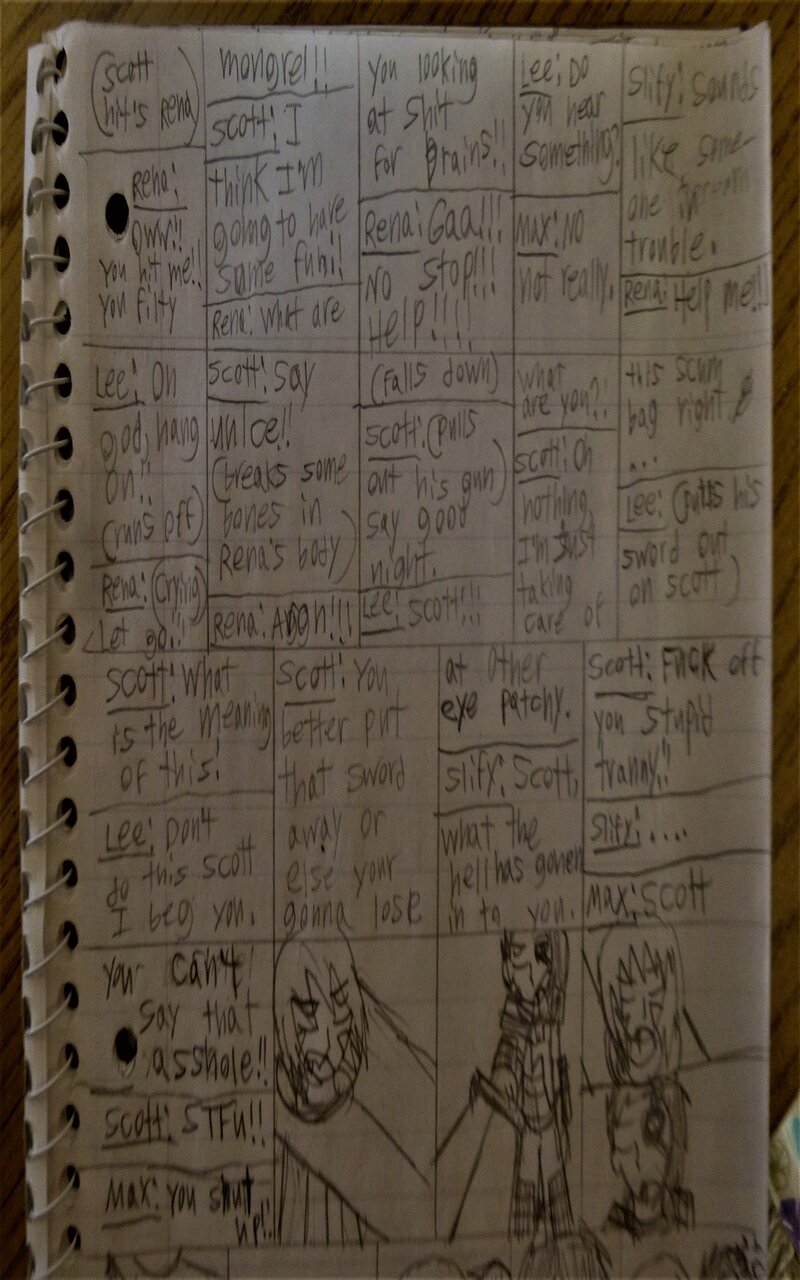 (Scott
hit's Rena)
Rena:
Oww!!
You hit me!!
You filty
mongrel!!
Scott: I
think I'm
going to have
some fun!!
Rena: What are
you looking
at shit
for brains!!
Rena: Gaa!!!
No stop!!!
Help!!!!
Lee: Do
you hear
something?
Max: No
not really.
Slify: Sounds
like some-
one in
trouble.
Rena: Help me!!!
Lee: Oh
god, hang
on!!
(runs off)
Rena: (crying)
Let go!!
Scott: Say
unlce!!
(breaks some
bones in
Rena's body)
Rena: Aggh!!!
(falls down)
Scott: (pulls
out his gun)
say good
night.
Lee: Scott!!!
What
are you?!
Scott: Oh
nothing,
I'm just
taking
care of
this scum
bag right
...
Lee: (pulls his
sword out
on scott)
Scott: What
is the meaning
of this!
Lee: Don't
do this scott
I beg you.
Scott: You
better put
that sword
away or
else your
gonna lose
at other
eye patchy.
Slify: Scott,
what the
hell has gonen
in to you.
Scott: Fuck off
you stupid
tranny!!
Slify: ....
Max: Scott
you can't
say that
asshole!!
Scott: STFU!!
Max: You shut
up!!